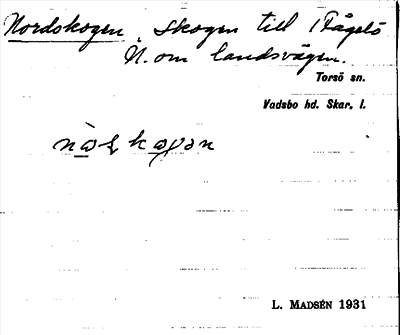 Nordskogen, skogen till Fågelö
N. om landsvägen.
Torsö sn.
Vadsbo hd. Skar. l.
L. MADSÉN 1931